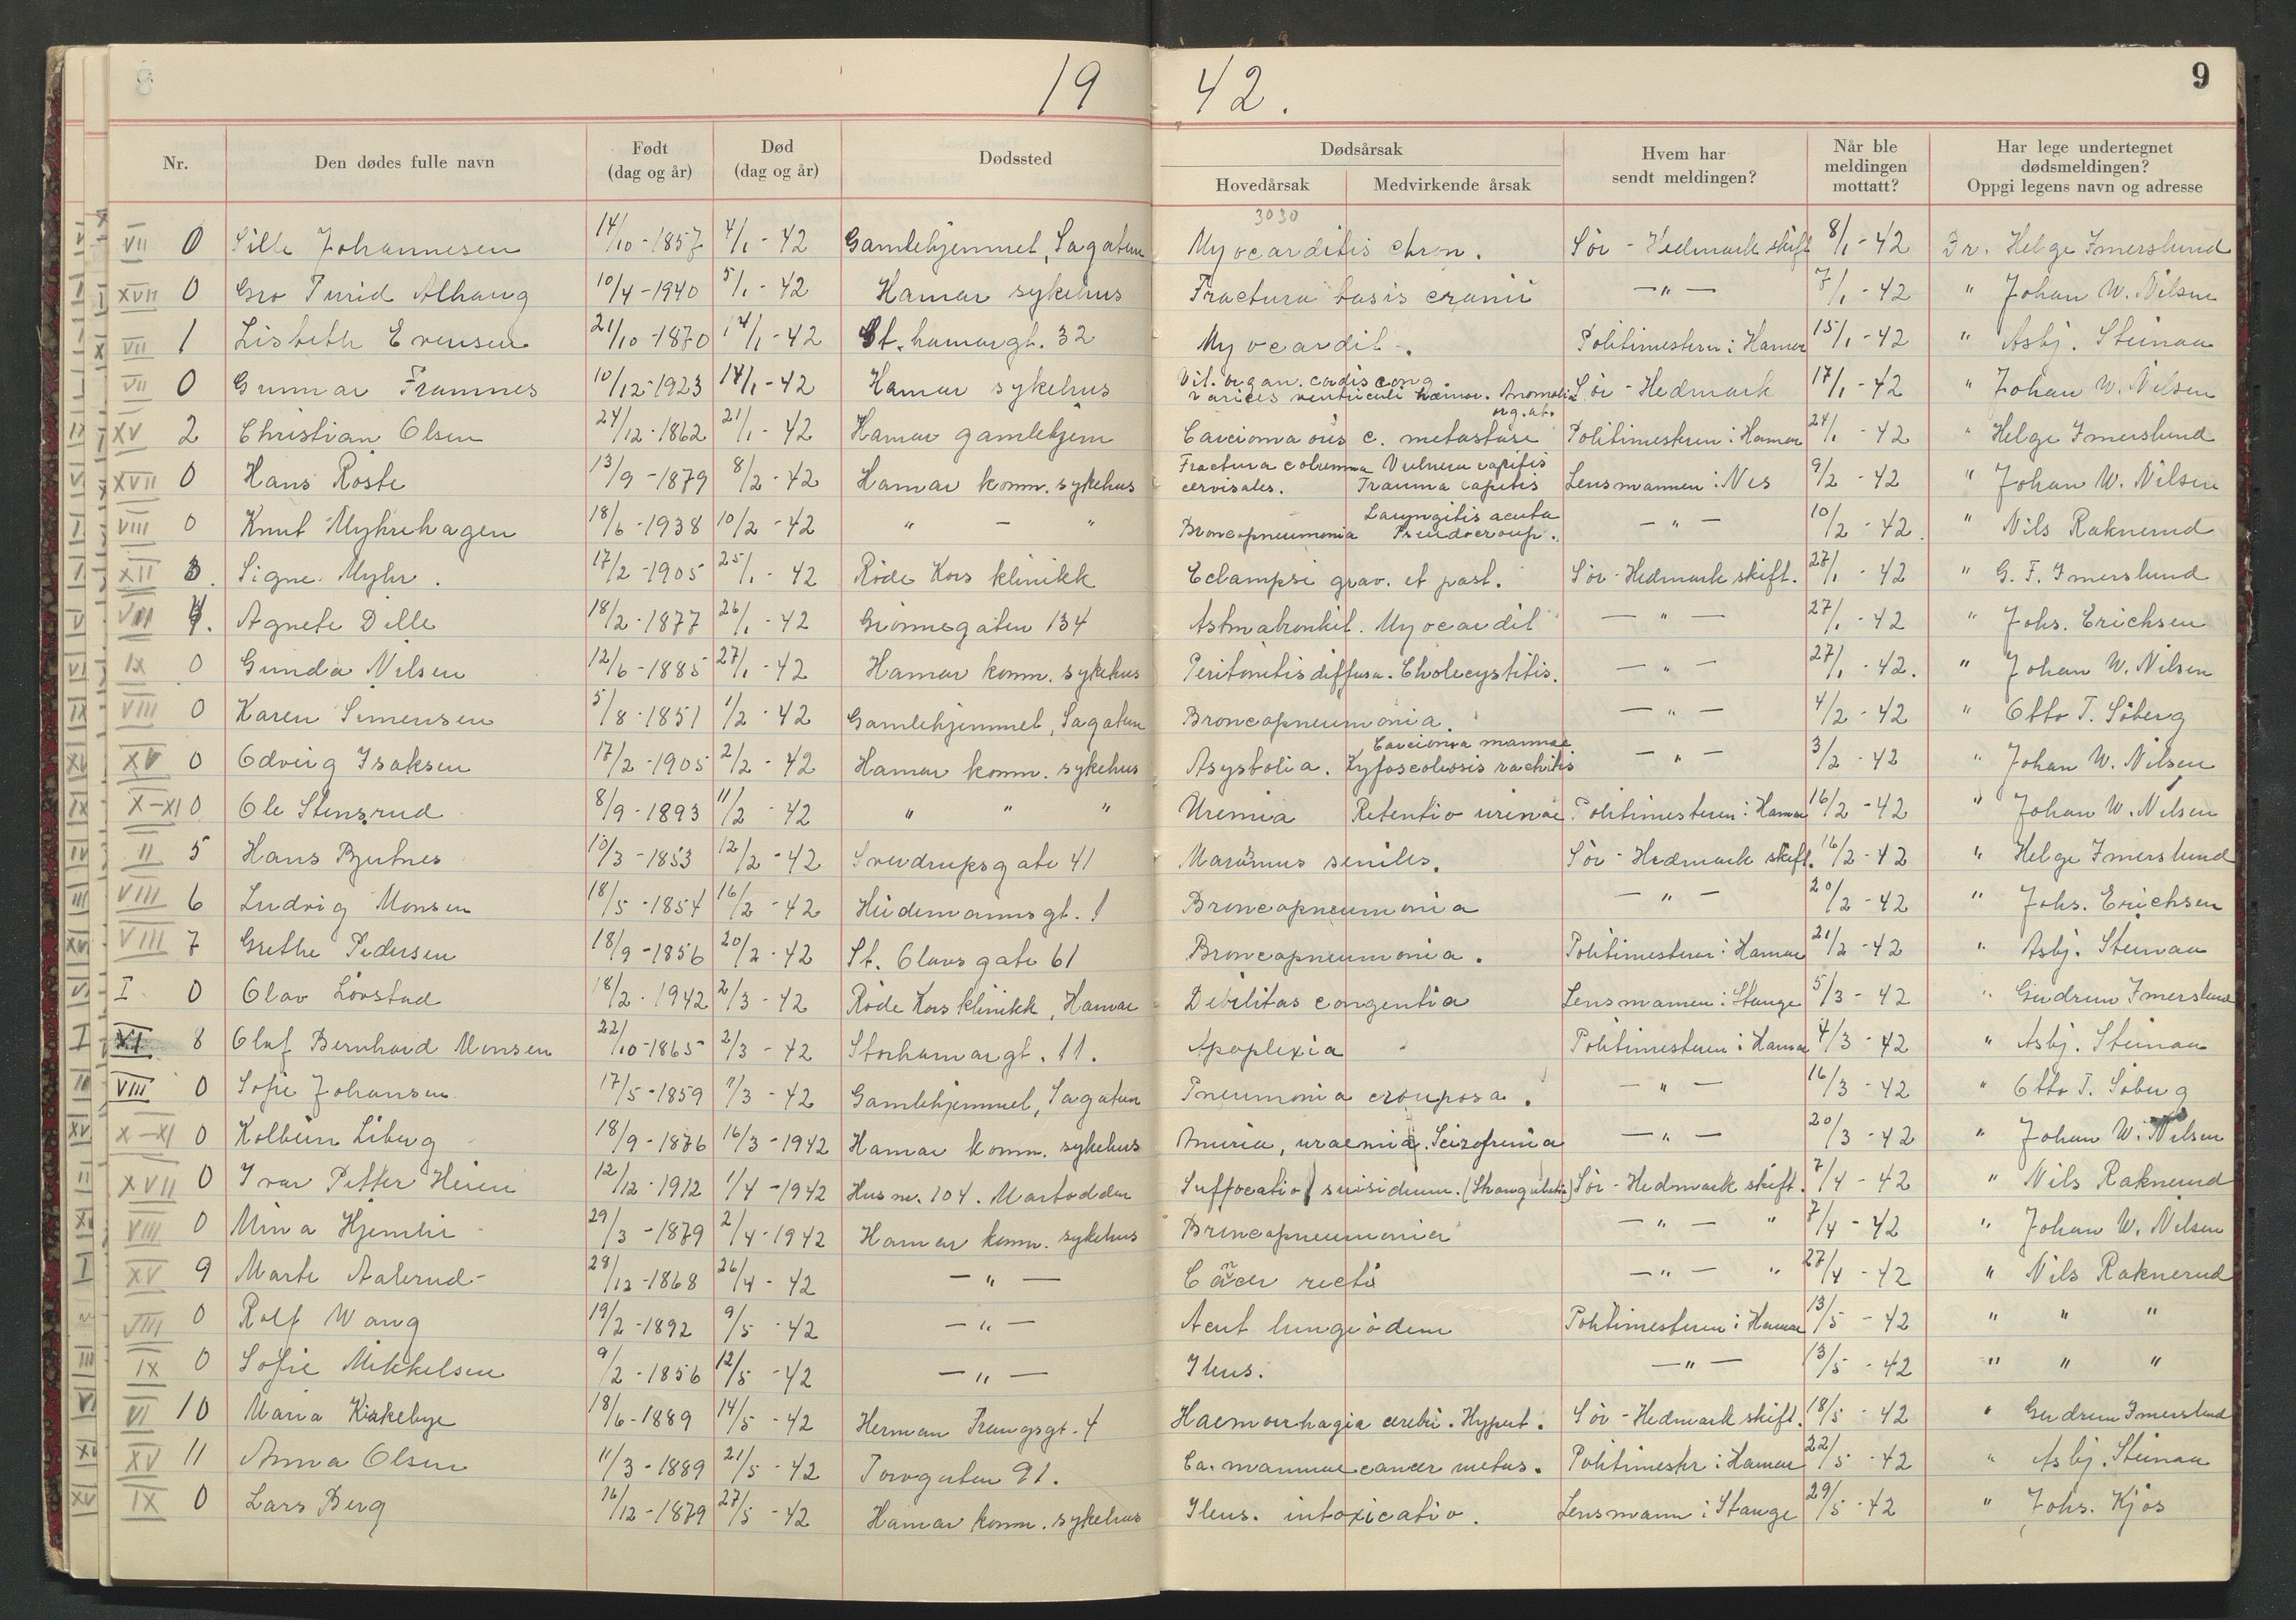 8
19 42.
9
Nr. Den dødes fulle navn Født (dag og år) Død (dag og år) Dødssted Dødsårsak Hovedårsak Medvirkende årsak Hvem har sendt meldingen? Når ble meldingen mottatt? Har lege undertegnet dødsmeldingen? Oppgi legens navn og adresse
3030
VII 0 Sille Johannesen 14/10-1857 4/1-42 Gamlehjemmet, Sagatun Myocarditis chron. Sör-Hedmark skift 8/1-42 Dr. Helge Imerslund
XVII 0 Gro Turid Alhaug 10/4-1940 5/1-42 Hamar sykehus Fractura basis cranii —"— 7/1-42 " Johan W. Nilsen
VII 1 Lisbeth Evensen 21/10-1870 14/1-42 St. hamargt. 32 Myocardit. Politimesteren i Hamar 15/1-42 " Asbj. Steinan
VII 0 Gunnar Framnes 10/12-1923 14/1-42 Hamar sykehus Vit. organ. cordis cong. varices ventriculi hæmor. Anomalia org. ab. Sör-Hedmark 17/1-42 " Johan W. Nilsen
XV 2 Christian Olsen 24/12-1862 21/1-42 Hamar gamlehjem Carcioma oris c. metastase Politimesteren i Hamar 24/1-42 " Helge Imerslund
XVII 0 Hans Röste 13/9-1879 8/2-42 Hamar komm. sykehus Fractura columna cervisales. Vulnera capitis Trauma capitis Lensmannen i Nes 9/2-42 " Johan W. Nilsen
VIII 0 Knut Myhrehagen 18/6-1938 10/2-42 " — " Broncopneumonia Laryngitis acuta Pseudocroup. —"— 10/2-42. " Nils Raknerud
XII 3. Signe Myhr. 17/2-1905 25/1-42 Röde Kors klinikk Eclampsi grav. et post. Sör-Hedmark skift. 28/1-42 " G. F. Imerslund
VIII 4. Agnete Dille 18/2-1877 26/1-42 Grönnegaten 134 Astmabronkit. Myocardit —"— 27/1-42 " Johs. Erichsen
IX 0 Gunda Nilsen 12/6-1885 27/1-42 Hamar komm. sykehus Peritonitis diffusa. Cholecystitis. —"— 27/1-42. " Johan W. Nilsen
VIII 0 Karen Simensen 5/8-1851 1/2-42 Gamlehjemmet, Sagatun Broncopneumonia. —"— 4/2-42 " Otto T. Söberg
XV 0 Odveig Isaksen 17/2-1905 2/2-42 Hamar komm. sykehus Asystolia. Carcioma mammae Kyfoscoliosis rachitis —"— 3/2-42 " Johan W. Nilsen
X-XI 0 Ole Stensrud 8/9-1893 11/2-42 " " " Uremia Retentio urinae Politimesteren i Hamar 16/2-42 " Johan W. Nilsen
II 5 Hans Bjutnes 10/3-1853 12/2-42 Sverdrupsgate 41 Marasmus seniles. Sör-Hedmark skift. 16/2-42 " Helge Imerslund
VIII 6 Ludvig Monsen 18/5-1854 16/2-42 Heidemannsgt. 1 Broncopneumonia —"— 20/2-42 " Johs. Erichsen
VIII 7 Grethe Pedersen 18/9-1856 20/2-42 St. Olavs gate 61 Broncopneumonia. Politimesteren i Hamar 21/2-42 " Asbj. Steinan
I 0 Olav Lövstad 18/2-1942 2/3-42 Röde Kors klinikk, Hamar Debilitas congentia Lensmannen i Stange 5/3-42 " Gudrun Imerslund
XI 8 Olaf Bernhard Monsen 22/10-1865 2/3-42 Storhamargt. 11. Apoplexia Politimesteren i Hamar 4/3-42 " Asbj. Steinan
VIII 0 Sofie Johansen 17/5-1859 11/3-42 Gamlehjemmet, Sagatun Pneumonia crouposa. —"— 16/3-42 " Otto T. Söberg
X-XI 0 Kolbein Liberg 18/9-1876 16/3-1942 Hamar komm. sykehus Anuria, uraemia. Scizofrenia —"— 20/3-42 " Johan W. Nilsen
XVII 0 Ivar Petter Heien 12/12-1912 1/4-1942 Hus nr. 104. Martodden Suffocatio suisidium. (Strangulatio) Sör-Hedmark skift. 7/4-42 " Nils Raknerud
VIII 0 Mina Hjemlie 29/3-1879 2/4-1942 Hamar komm. sykehus Broncopneumonia —"— " 7/4-42 " Johan W. Nilsen
XV 9 Marte Aalerud 28/12-1868 26/4-42 —"— Cancer recti —"— " 27/4-42 " Nils Raknerud
VIII 0 Rolf Wang 19/2-1892 9/5-42 —"— Acut lungeödem Politimesteren i Hamar 13/5-42 " " "
IX 0 Sofie Mikkelsen 9/2-1856 12/5-42 —"— Ileus. —"— 13/5-42 " " "
VI 10 Maria Kirkebye 18/6-1889 14/5-42 Herman Frangsgt. 4 Haemorrhagia cerebri. Hypert. Sör-Hedmark skift. 18/5-42 " Gudrun Imerslund
XV 11 Anna Olsen 11/3-1889 21/5-42 Torvgaten 91. Ca. mammae cancer metas. Politimestr. i Hamar 22/5-42 " Asbj. Steinan
IX 0 Lars Berg 16/12-1879 27/5-42 Hamar komm. sykehus Ileus. intoxicatio. Lensmann i Stange 29/5-42 " Johs. Kjos